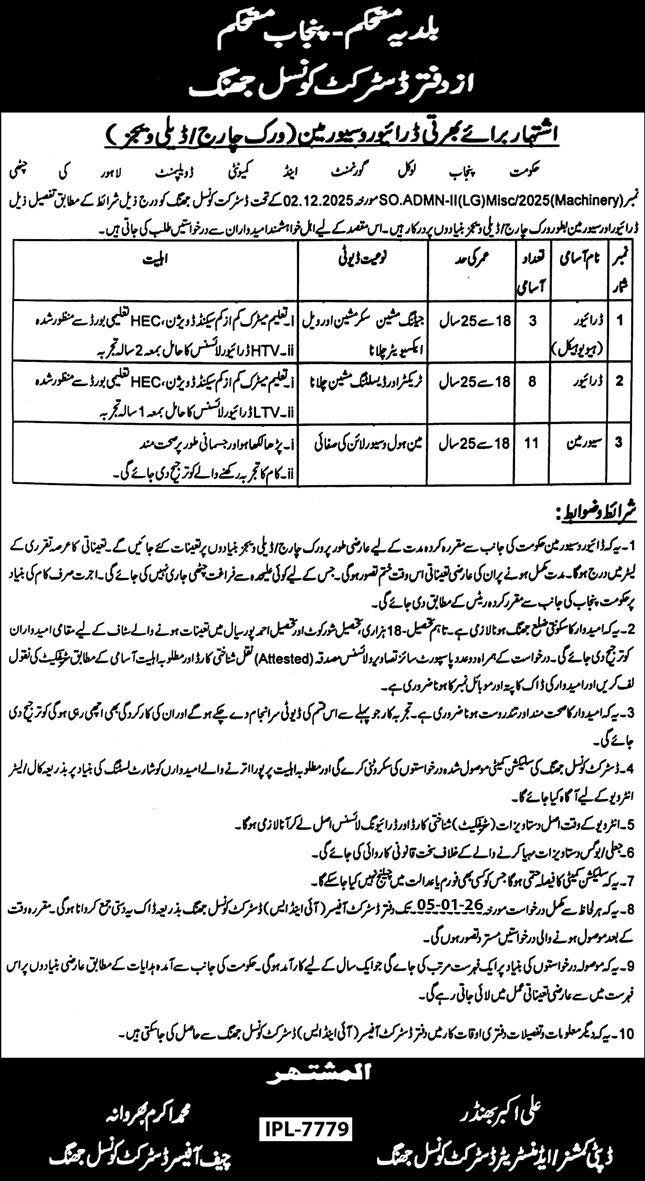 بلدیہ مستحکم - پنجاب مستحکم
از دفتر ڈسٹرکٹ کونسل جھنگ
اشتہار برائے بھرتی ڈرائیور و سیور مین (ورک چارج / ڈیلی ویجز)
حکومت پنجاب لوکل گورنمنٹ اینڈ کمیونٹی ڈویلپمنٹ لاہور کی چٹھی
نمبر SO.ADMN-II(LG)Misc/2025(Machinery) مورخہ 02.12.2025 کے تحت ڈسٹرکٹ کونسل جھنگ کو درج ذیل شرائط کے مطابق تفصیل ذیل
ڈرائیور اور سیور مین بطور ورک چارج / ڈیلی ویجز بنیادوں پر درکار ہیں۔ اس مقصد کے لیے اہل خواہشمند امیدواران سے درخواستیں طلب کی جاتی ہیں۔
نمبر شمار | نام آسامی | تعداد آسامی | عمر کی حد | نوعیت ڈیوٹی | اہلیت
1 | ڈرائیور (ہیوی وہیکل) | 3 | 18 سے 25 سال | جیٹنگ مشین سکر مشین اور ویل ایکسیویٹر چلانا | i۔ تعلیم میٹرک کم از کم سیکنڈ ڈویژن، HEC تعلیمی بورڈ سے منظور شدہ
ii۔ HTV ڈرائیور لائسنس کا حامل بمعہ 2 سالہ تجربہ
2 | ڈرائیور | 8 | 18 سے 25 سال | ٹریکٹر اور ڈسلٹنگ مشین چلانا | i۔ تعلیم میٹرک کم از کم سیکنڈ ڈویژن، HEC تعلیمی بورڈ سے منظور شدہ
ii۔ LTV ڈرائیور لائسنس کا حامل بمعہ 1 سالہ تجربہ
3 | سیور مین | 11 | 18 سے 25 سال | مین ہول و سیور لائن کی صفائی | i۔ پڑھا لکھا ہو اور جسمانی طور پر صحت مند
ii۔ کام کا تجربہ رکھنے والے کو ترجیح دی جائے گی۔
شرائط و ضوابط:
1۔ یہ کہ ڈرائیور و سیور مین حکومت کی جانب سے مقرر کردہ مدت کے لیے عارضی طور پر ورک چارج / ڈیلی ویجز بنیادوں پر تعینات کئے جائیں گے۔ تعیناتی کا عرصہ تقرری کے
لیٹر میں درج ہوگا۔ مدت مکمل ہونے پر ان کی عارضی تعیناتی اس وقت ختم تصور ہوگی۔ جس کے لیے کوئی علیحدہ سے فراغت چٹھی جاری نہیں کی جائے گی۔ اجرت صرف کام کی بنیاد
پر حکومت پنجاب کی جانب سے مقرر کردہ ریٹس کے مطابق دی جائے گی۔
2۔ یہ کہ امیدوار کا سکونتی ضلع جھنگ ہونا لازمی ہے۔ تاہم تحصیل-18 ہزاری، تحصیل شورکوٹ اور تحصیل احمد پور سیال میں تعینات ہونے والے سٹاف کے لیے مقامی امیدواران
کو ترجیح دی جائے گی۔ درخواست کے ہمراہ دو عدد پاسپورٹ سائز تصاویر و لائسنس مصدقہ (Attested) نقل شناختی کارڈ اور مطلوبہ اہلیت آسامی کے مطابق سرٹیفکیٹ کی نقول
لف کریں اور امیدوار کی ڈاک کا پتہ اور موبائل نمبر کا ہونا ضروری ہے۔
3۔ یہ کہ امیدوار کا صحت مند اور تندروست ہونا ضروری ہے۔ تجربہ کار جو پہلے سے اس قسم کی ڈیوٹی سرانجام دے چکے ہو گے اور ان کی کارکردگی بھی اچھی رہی ہو گی کو ترجیح دی
جائے گی۔
4۔ ڈسٹرکٹ کونسل جھنگ کی سلیکشن کمیٹی موصول شدہ درخواستوں کی سکروٹنی کرے گی اور مطلوبہ اہلیت پر پورا اترنے والے امیدواروں کو شارٹ لسٹنگ کی بنیاد پر بذریعہ کال / لیٹر
انٹرویو کے لیے آگاہ کیا جائے گا۔
5۔ انٹرویو کے وقت اصل دستاویزات (سرٹیفکیٹ) شناختی کارڈ اور ڈرائیونگ لائسنس اصل لے کر آنا لازمی ہوگا۔
6۔ جعلی / بوگس دستاویزات مہیا کرنے والے کے خلاف سخت قانونی کاروائی کی جائے گی۔
7۔ یہ کہ سلیکشن کمیٹی کا فیصلہ حتمی ہوگا جس کو کسی بھی فورم یا عدالت میں چیلنج نہیں کیا جا سکے گا۔
8۔ یہ کہ ہر لحاظ سے مکمل درخواست مورخہ 05-01-26 تک دفتر ڈسٹرکٹ آفیسر (آئی اینڈ ایس) ڈسٹرکٹ کونسل جھنگ بذریعہ ڈاک یہ دستی جمع کروانا ہو گی۔ مقررہ وقت
کے بعد موصول ہونے والی درخواستیں مسترد تصور ہوں گی۔
9۔ یہ کہ موصولہ درخواستوں کی بنیاد پر ایک فہرست مرتب کی جائے گی جو ایک سال کے لیے کارآمد ہوگی۔ حکومت کی جانب سے آمدہ ہدایات کے مطابق عارضی بنیادوں پر اس
فہرست میں سے عارضی تعیناتی عمل میں لائی جاتی رہے گی۔
10۔ یہ کہ دیگر معلومات و تفصیلات دفتری اوقات کار میں دفتر ڈسٹرکٹ آفیسر (آئی اینڈ ایس) ڈسٹرکٹ کونسل جھنگ سے حاصل کی جا سکتی ہیں۔
المشتہر
علی اکبر بھنڈر
ڈپٹی کمشنر / ایڈمنسٹریٹر ڈسٹرکٹ کونسل جھنگ
محمد اکرم بھروانہ
چیف آفیسر ڈسٹرکٹ کونسل جھنگ
IPL-7779